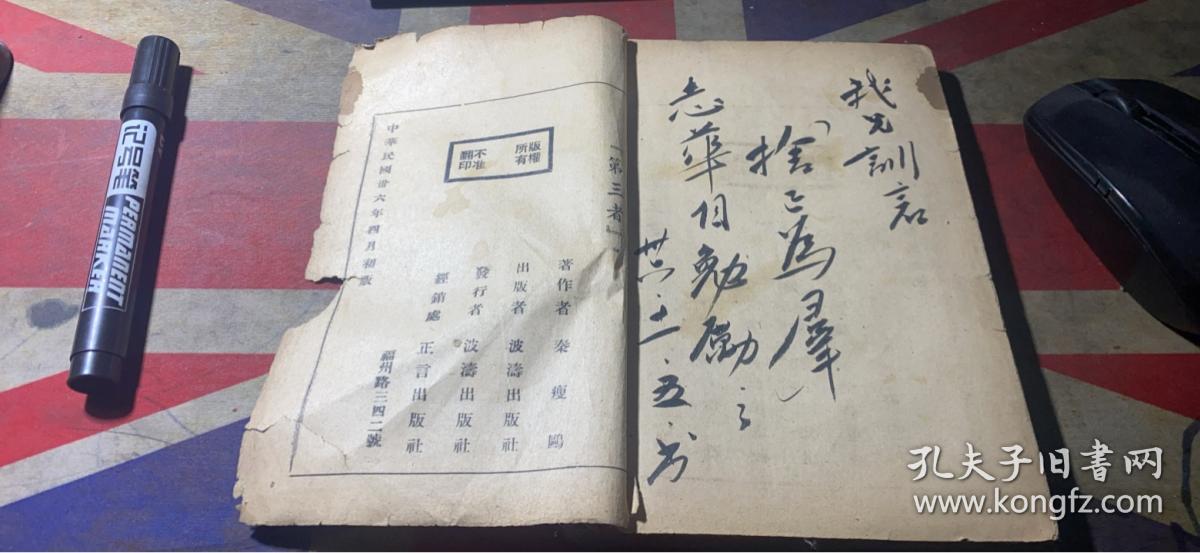 我兄訓言
「捨己為羣」
志華自勉勵之
卅六、十一、五、書
『第三者』
版權所有
不准翻印
著作者 秦瘦鷗
出版者 波濤出版社
發行者 波濤出版社
經銷處 正言出版社
福州路三四二號
中華民國卅六年四月初版
记号笔
PERMANENT
MARKER
孔夫子旧书网
www.kongfz.com